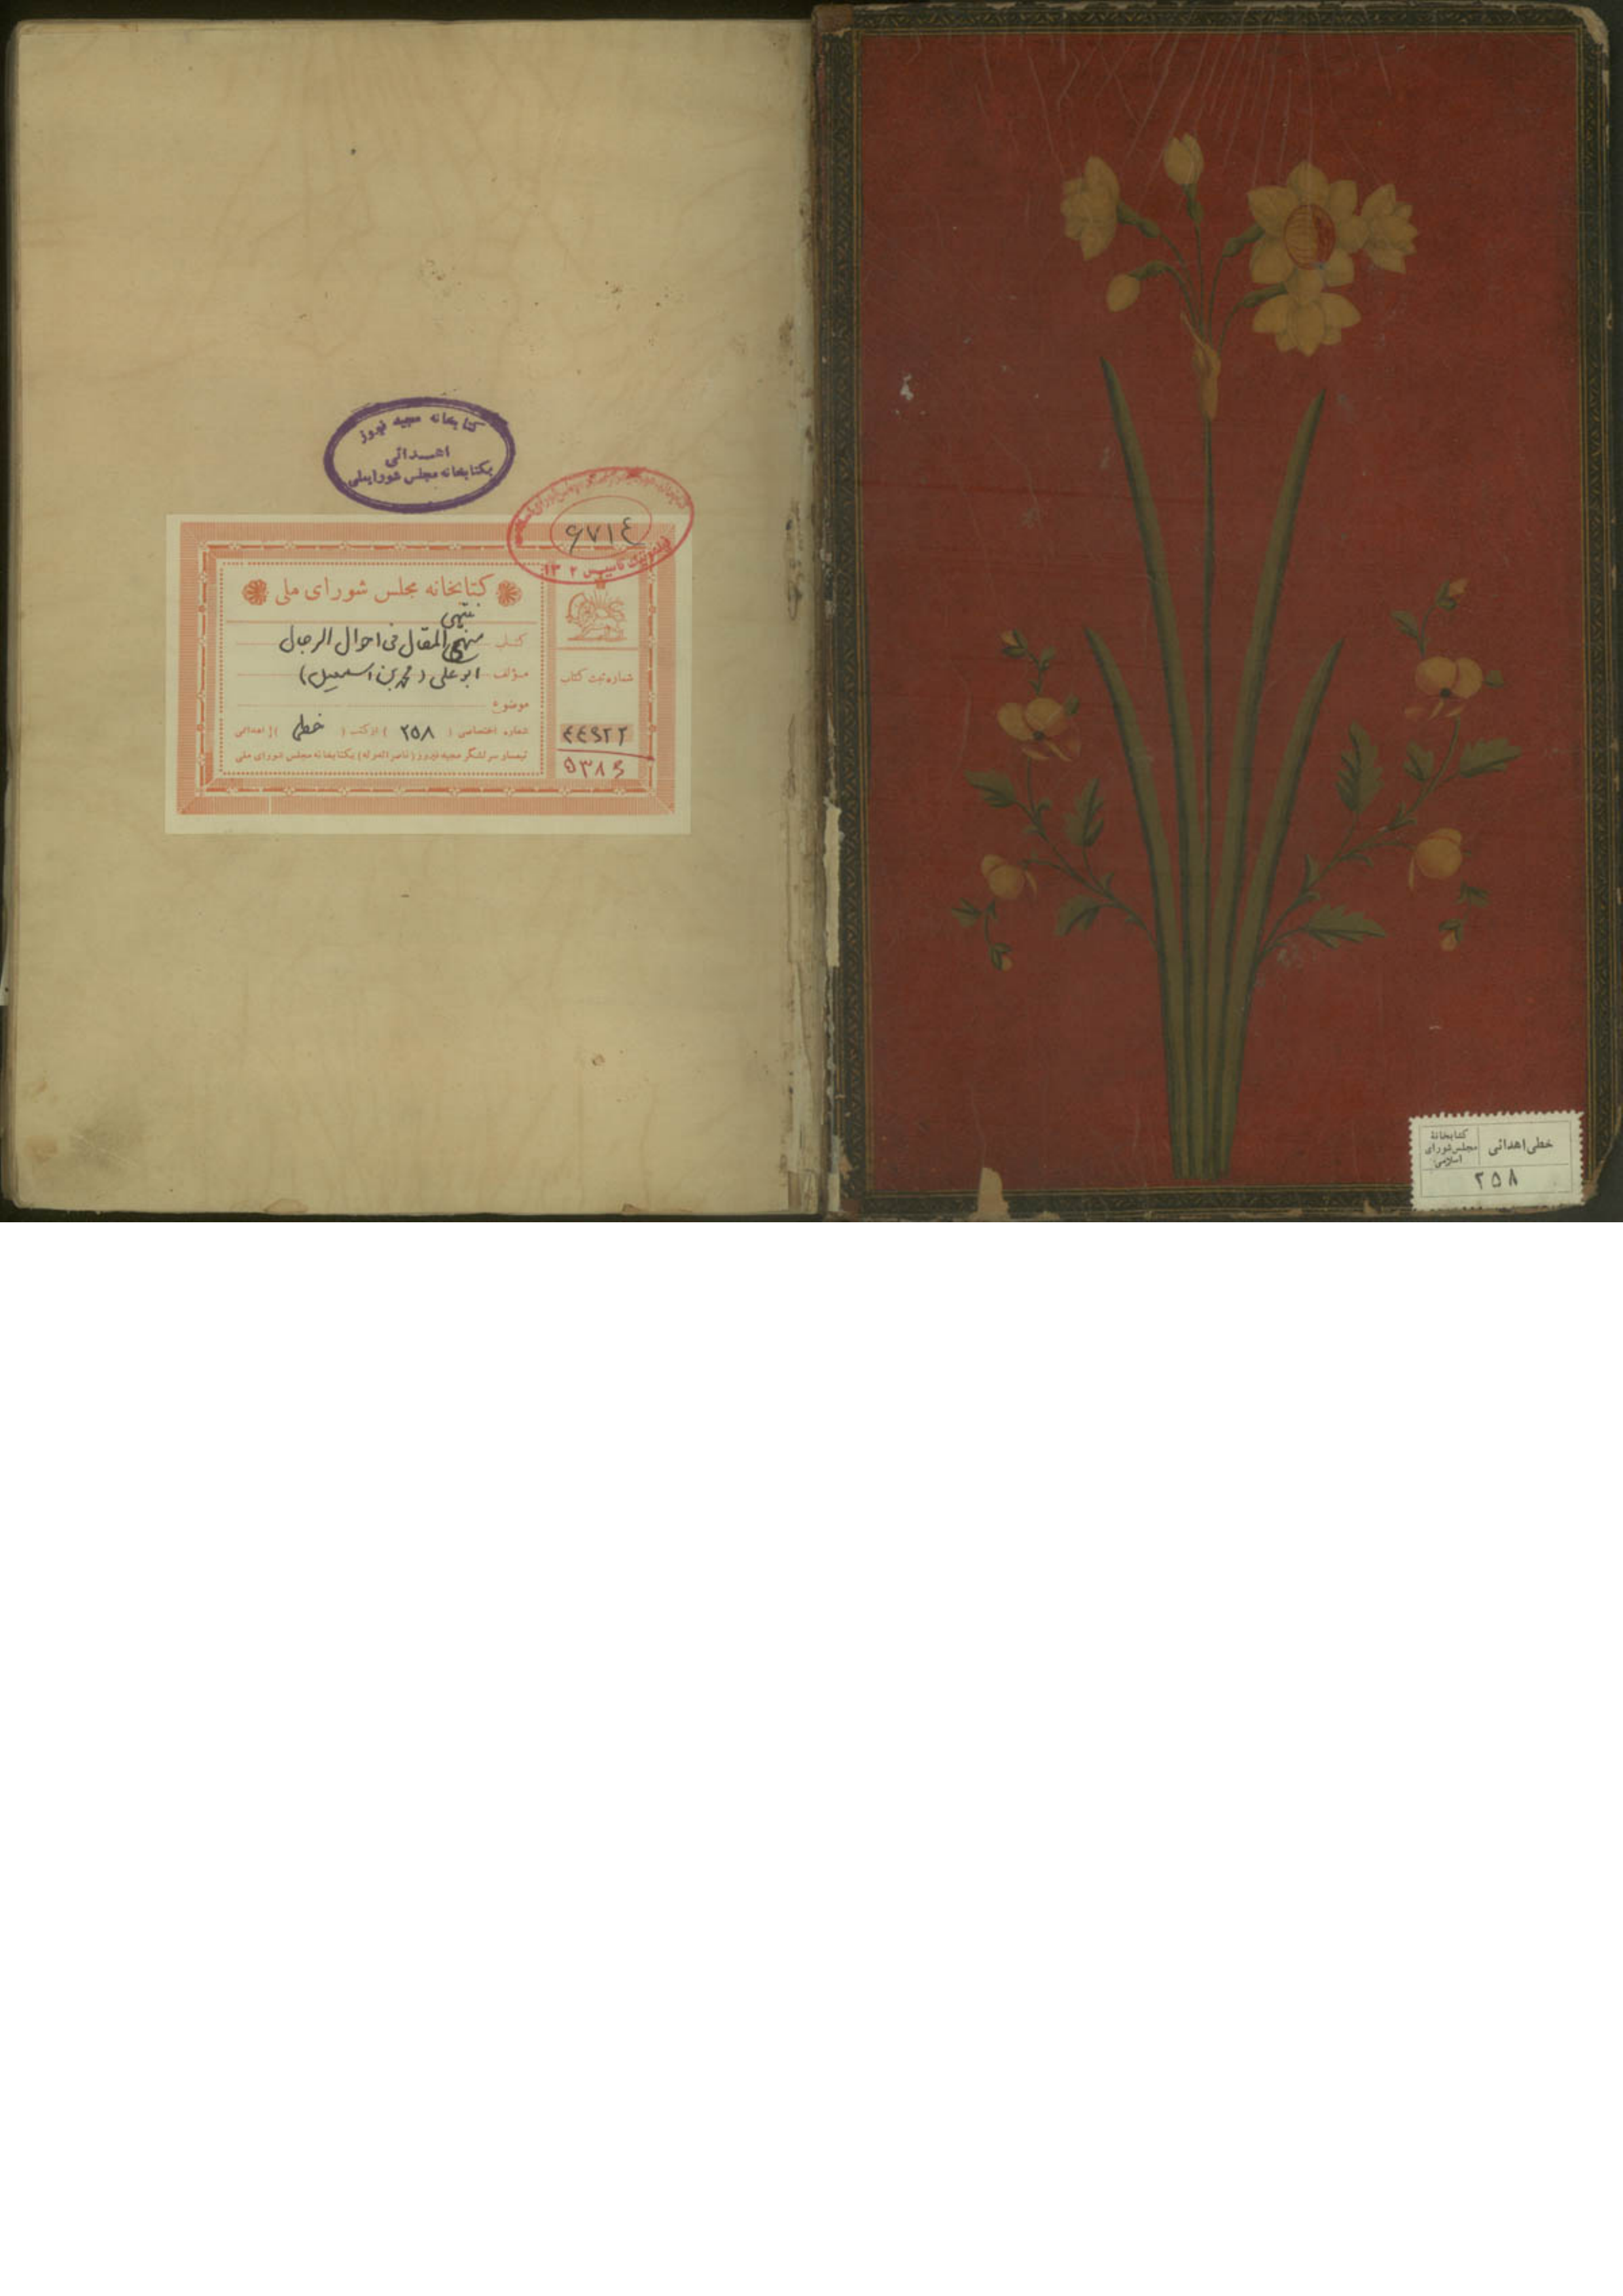 کتابخانه مجید فیروز
اهدائی
بکتابخانه مجلس شورایملی
۶۷۱٤
تأسیس ۱۳۰۲
کتابخانه مجلس شورای ملی
منتهی
کتاب منهج المقال فی احوال الرجال
مؤلف ابوعلی (محمد بن اسمعیل)
موضوع
شماره اختصاصی ( ۲۵۸ ) از کتب ( خطی ) اهدائی
تیمسار سرلشگر مجید فیروز (ناصرالدوله) بکتابخانه مجلس شورای ملی
شماره ثبت کتاب
٤٤۹۲۲
۵۳۸۶
خطی اهدائی
کتابخانهٔ
مجلس شورای
اسلامی
۲۵۸